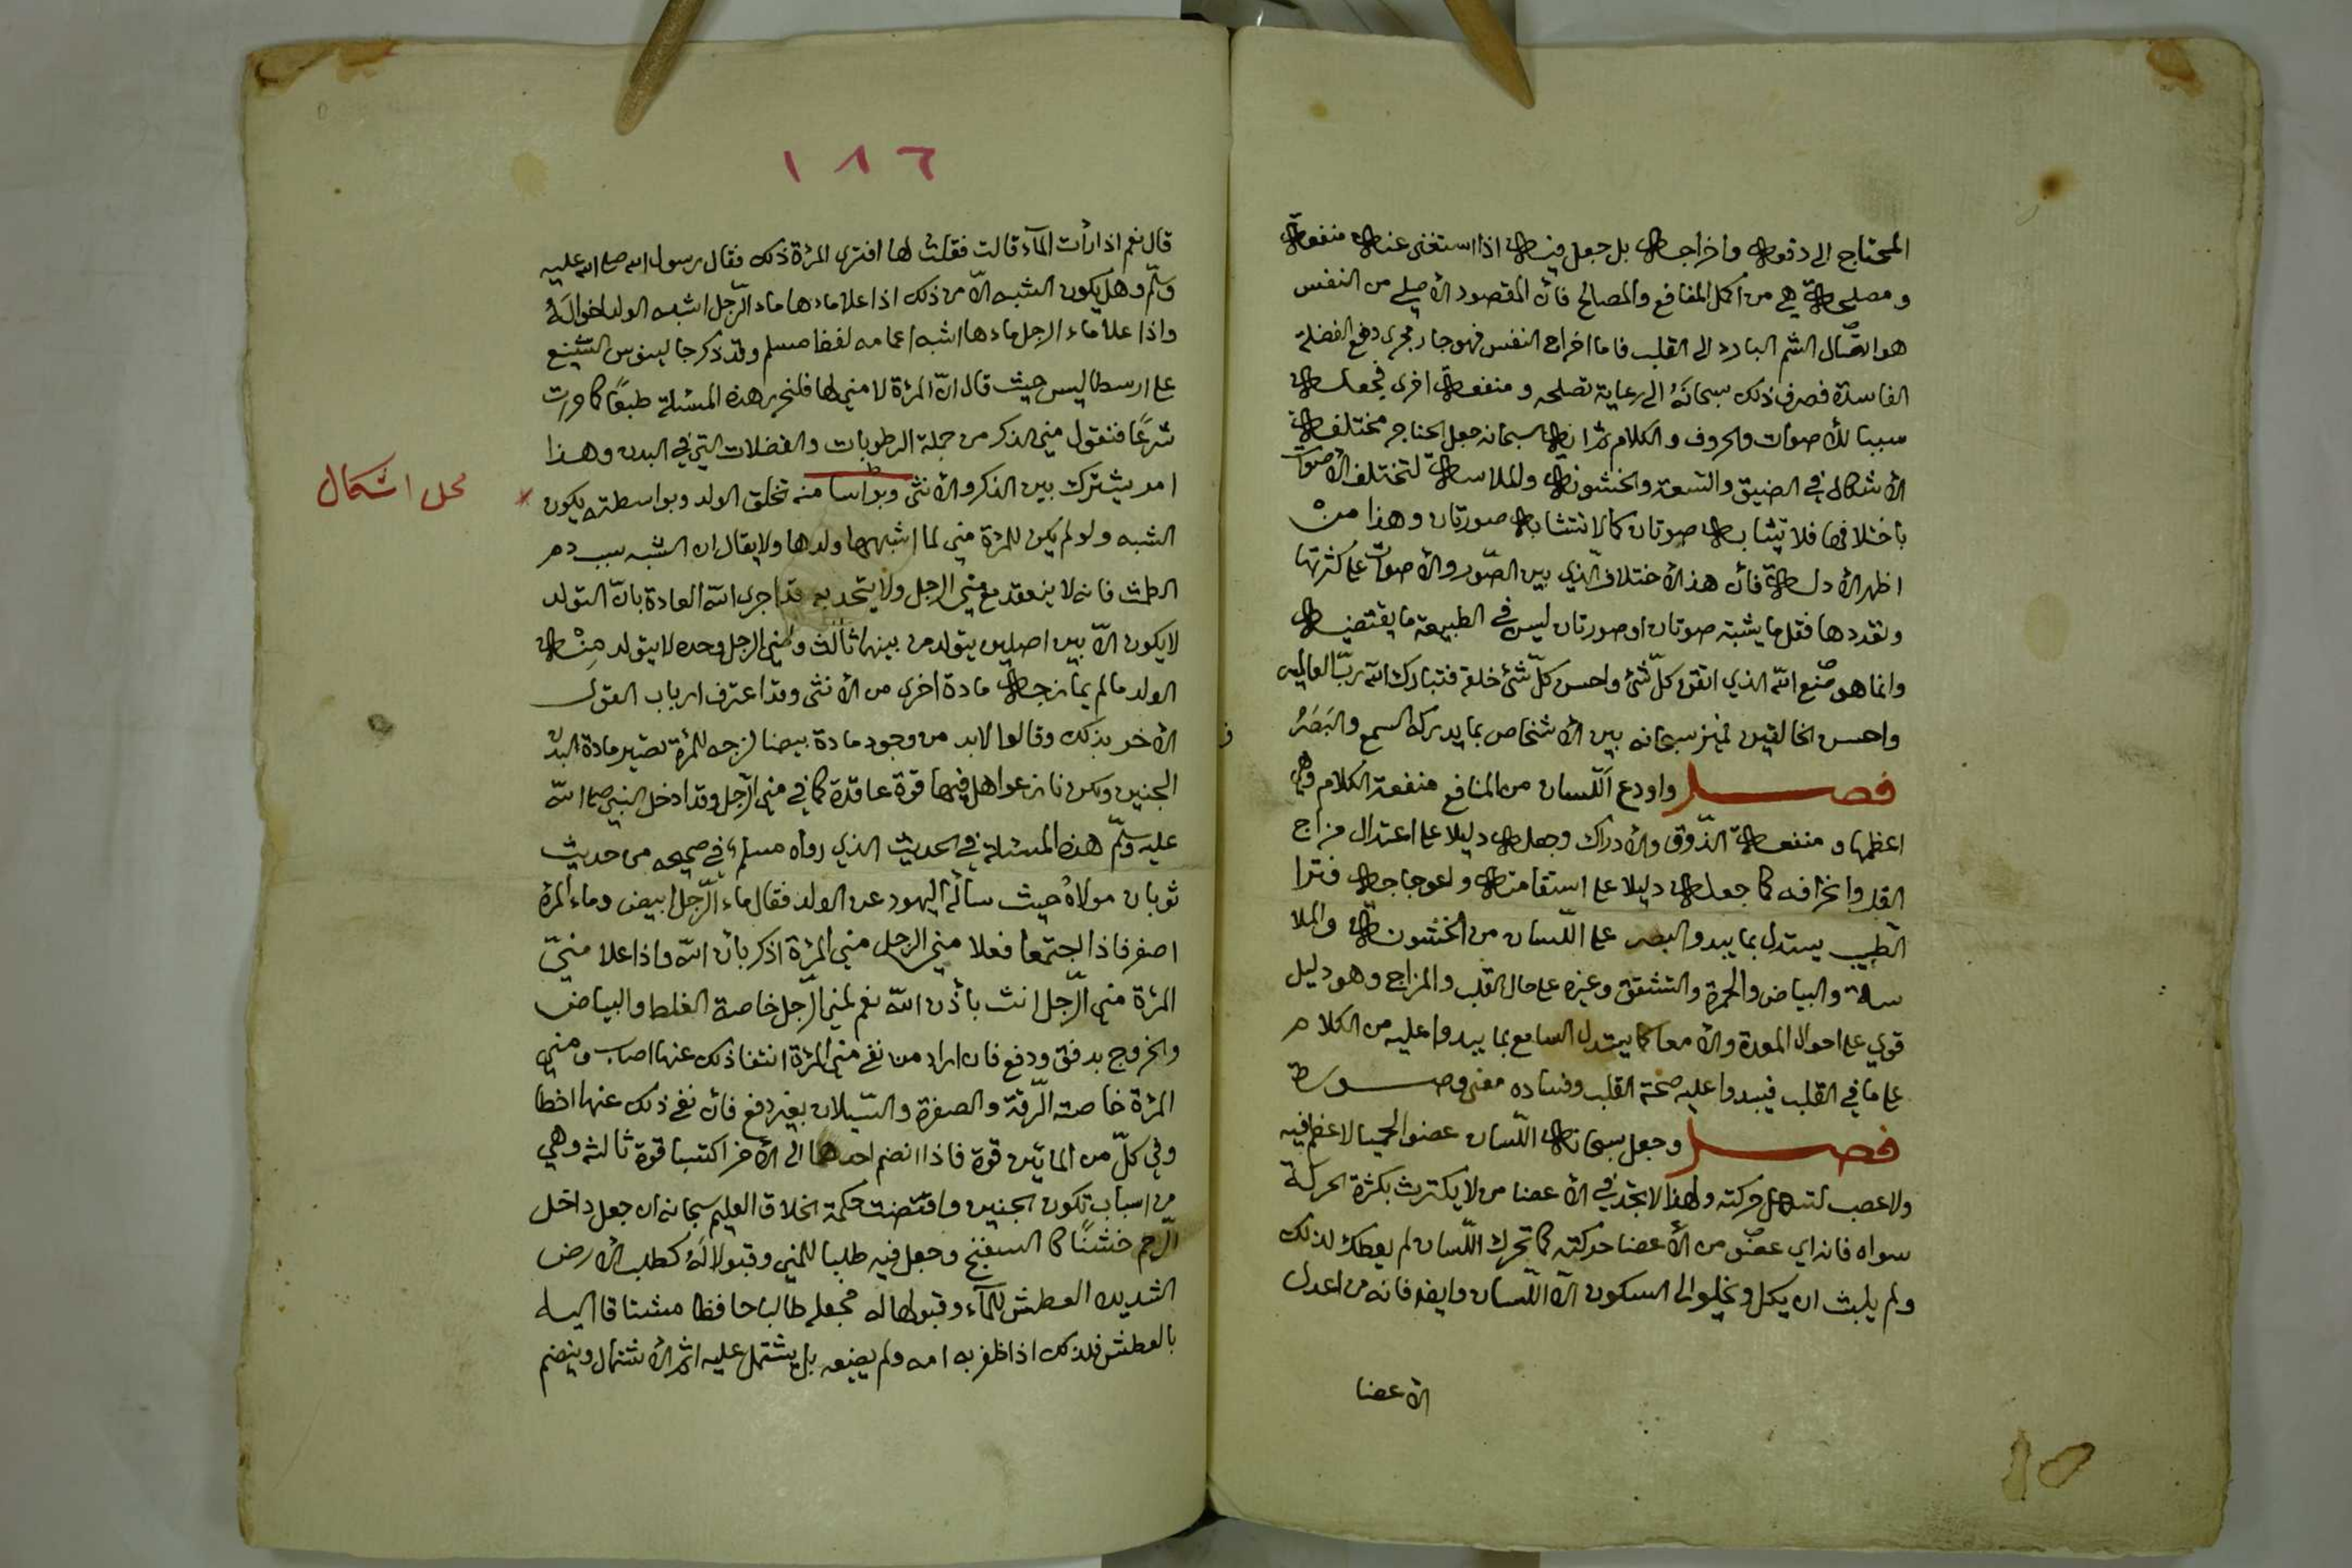 المحتاج الى دفعه واخراجه بل جعل فيه اذا استغنى عنه منفعة
ومصلحة هي من اكمل المنافع والمصالح فان المقصود الأصلي من النفس
هو اتصال النسم البارد الى القلب فاما اخراج النفس فهو جار مجرى دفع الفضلة
الفاسدة فصرف ذلك سبحانه الى رعاية مصلحة ومنفعة اخرى فجعله
سببا للأصوات والحروف والكلام ثم انه سبحانه جعل الحناجر مختلفة
الأشكال في الضيق والسعة والخشونة والملاسة لتختلف الأصوات
باختلافها فلا يتشابه صوتان كما لا تتشابه صورتان وهذا من
اظهر الأدلة فان هذا الأختلاف الذي بين الصور والأصوات على كثرتها
وتعددها فقل ما يشتبه صوتان او صورتان ليس في الطبيعة ما يقتضيه
وانما هو صنع الله الذي اتقن كل شئ واحسن كل شئ خلقه فتبارك الله رب العالمين
واحسن الخالقين فميز سبحانه بين الأشخاص بما يدركه السمع والبصر
فصل واودع اللسان من المنافع منفعة الكلام وهي
اعظمها ومنفعة الذوق والأدراك وجعله دليلا على اعتدال مزاج
القلب وانحرافه كما جعله دليلا على استقامته واعوجاجه فترا
الطبيب يستدل بما يبدو البصر على اللسان من الخشونة والملا
سة والبياض والحمرة والتشقق وغيره على حال القلب والمزاج وهو دليل
قوي على احوال المعدة والأمعا كما يستدل السامع بما يبدوا عليه من الكلام
على ما في القلب فيبدوا عليه صحة القلب وفساده معنى وصورة
فصل وجعل سبحانه اللسان عضوا لحميا لا عظم فيه
ولا عصب لتسهل حركته ولهذا لا تجد في الأعضا من لا يكترث بكثرة الحركة
سواه فانه اي عضو من الأعضا حركته كما تحرك اللسان لم يعطك لذلك
ولم يلبث ان يكل ويخلو الى السكون الا اللسان وايضا فانه من اعدل
الأعضا
١٨٦
قال نعم اذا رأت المآء قالت فقلت لها افترى المرئة ذلك فقال رسول الله صلى الله عليه
وسلم وهل يكون الشبه الا من ذلك اذا علا ماءها ماء الرجل اشبه الولد اخواله
واذا علا ماء الرجل ماءها اشبه اعمامه لفظ مسلم وقد ذكر جالينوس التشنيع
على ارسطاليس حيث قال ان المرئة لا مني لها فلنحرر هذه المسئلة طبعًا كما حررت
شرعًا فنقول مني الذكر من جملة الرطوبات والفضلات التي في البدن وهذا
امر يشترك بين الذكر والأنثى وبواسا منه تخلق الولد وبواسطته يكون
محل اشكال
الشبه ولو لم يكن للمرئة مني لما اشبهها ولدها ولا يقال ان الشبه سبب دم
الطمث فانه لا ينعقد مع مني الرجل ولا يتحد به قد اجرى الله العادة بان التولد
لا يكون الا بين اصلين يتولد من بينهما ثالث ومني الرجل وحده لا يتولد منه
الولد ما لم يمازجه مادة اخرى من الأنثى وقد اعترف ارباب القول
الأخر بذلك وقالوا لابد من وجود مادة بيضا لزجه للمرئة تصير مادة البدن
الجنين ولكن نازعوا هل فيها قوة عاقدة كما في مني الرجل وقد ادخل النبي صلى الله
عليه وسلم هذه المسئلة في الحديث الذي رواه مسلم في صحيحه من حديث
ثوبان مولاه حيث سأله اليهود عن الولد فقال ماء الرجل ابيض وماء المرئة
اصفر فاذا اجتمعا فعلا مني الرجل مني المرئة اذكر باذن الله واذا علا مني
المرئة مني الرجل انث بأذن الله نعم لمني الرجل خاصة الغلظ والبياض
والخروج بدفق ودفع فان اراد من نفى مني المرئة انتفا ذلك عنها اصاب ومني
المرئة خاصته الرقة والصفرة والسيلان بغير دفع فان نفى ذلك عنها اخطا
وفي كل من المايين قوة فاذا انضم احدهما الى الأخر اكتسبا قوة ثالثه وهي
من اسباب تكون الجنين واقتضت حكمة الخلاق العليم سبحانه ان جعل داخل
الرحم خشنًا كا السفنج وجعل فيه طلبا للمني وقبولا له كطلب الأرض
الشديده العطش للمآء وقبولها له فجعله طالبا حافظا مشتاقا اليه
بالعطش فلذلك اذا ظفر به امه ولم يضيعه بل يشتمل عليه اتم الأشتمال وينضم